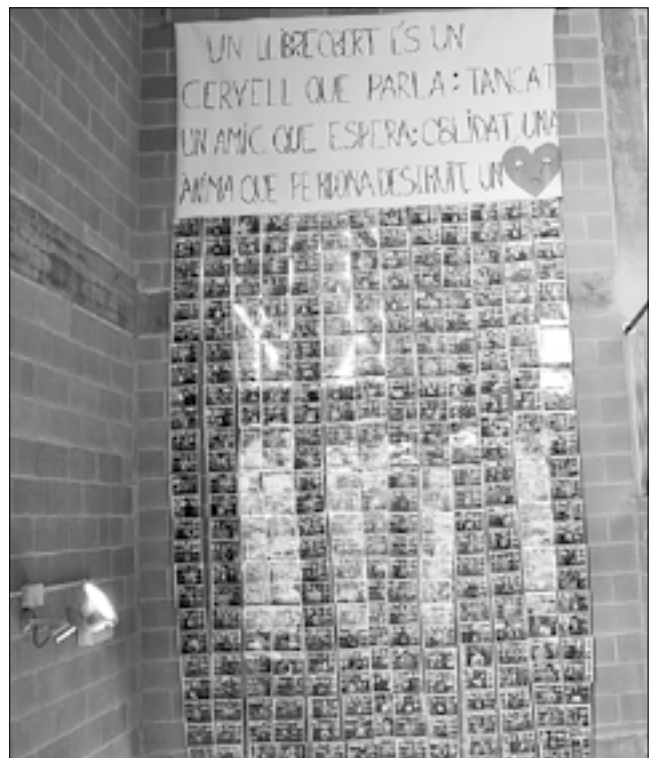 UN LLIBRE OBERT ÉS UN
CERVELL QUE PARLA: TANCAT
UN AMIC QUE ESPERA: OBLIDAT, UNA
ÀNIMA QUE PERDONA DESTRUÏT, UN